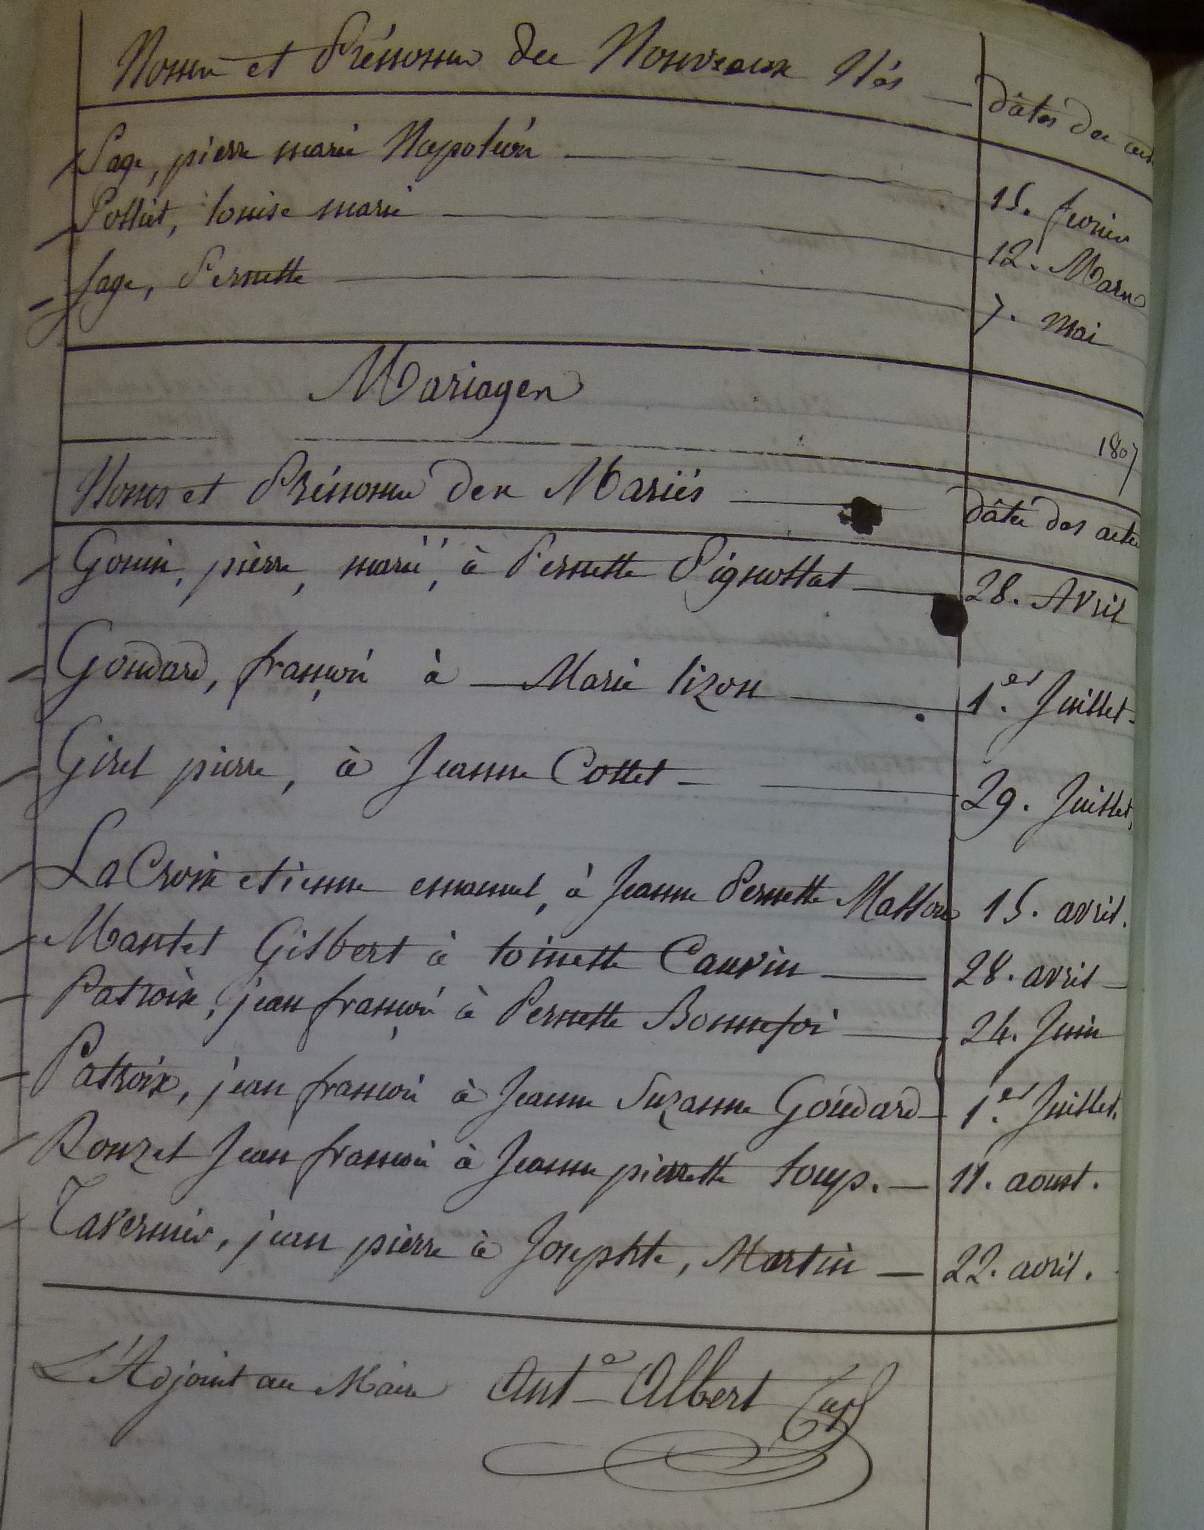 Noms et Prénoms des Nouveaux Nés — dâtes des actes
Sage, pierre marie Napoléon — 15. fevrier
Pottiet, louise marie — 12. Mars
Sage, Pernette — 7. Mai
Mariages
1807
Noms et Prénoms des Mariés — dâte des actes
Gonin, pierre, marié, à Pernette Pignottat — 28. Avril
Goudard, françois à — Marie lizon — 1.er Juillet
Girel pierre, à Jeanne Cottet — 29. Juillet,
LaCroix etienne emanuel, à Jeanne Pernette Masson 15. avril.
Mantel Gilbert à toinette Cauvin — 28. avril
Patroix, jean françois à Pernette Bonnefoi — 24. Juin
Patroix, jean françois à Jeanne Suzanne Goudard — 1.er Juillet.
Rouzet Jean françois à Jeanne pierrette loup. — 11. aoust.
Tavernier, jean pierre à Josephte, Martin — 22. avril.
L'Adjoint au Maire Ant.e Albert